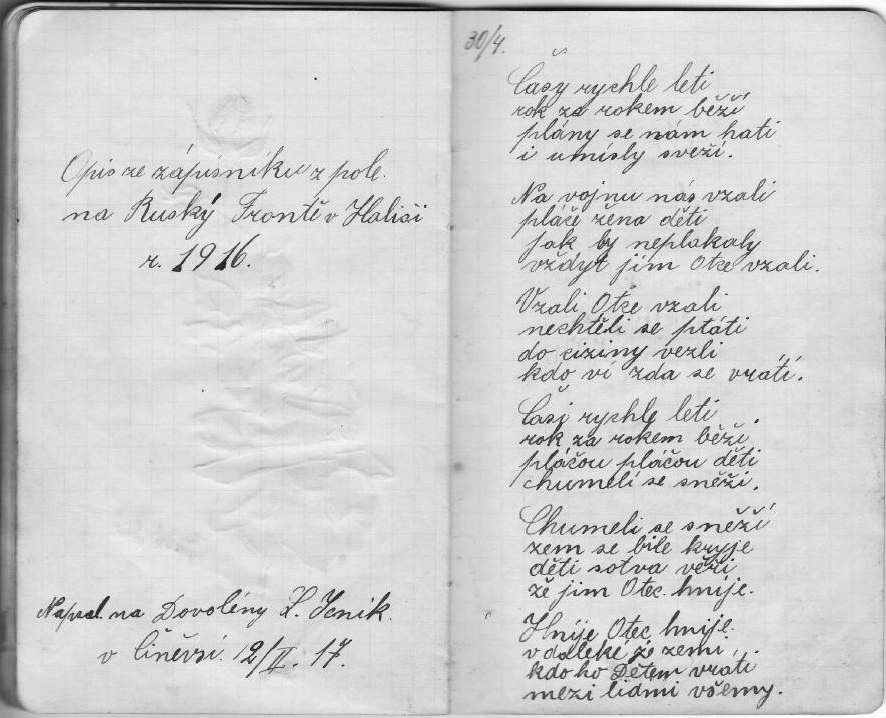 Opis ze zápisníku z pole.
na Ruský Frontě v Hališi
r. 1916.
Napsal na Dovolény L. Jeník.
v Činěvsi. 12/II. 17.
30/4.
Časy rychle leti
rok za rokem běží
plány se nám hati
i umísly sveží.
Na vojnu nás vzali
pláče žena děti
jak by neplakaly
vždyt jim Otce vzali.
Vzali Otce vzali
nechtěli se ptáti
do ciziny vezli
kdo ví zda se vrátí.
Časi rychle leti
rok za rokem běží
pláčou pláčou děti
chumelí se sněží.
Chumeli se sněží
zem se bíle kryje
děti sotva věří
že jim Otec hnije.
Hnije Otec hnije.
v daleke zemi,
kdo ho Dětem vrati
mezi lidmi všemy.